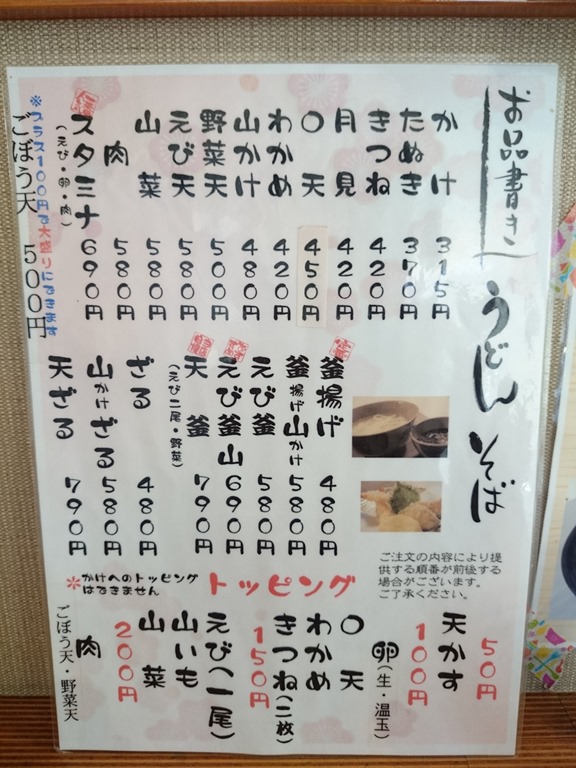 お品書き
うどん そば
かけ 315円
たぬき 370円
きつね 420円
月見 420円
〇天 450円
わかめ 420円
山かけ 480円
野菜天 500円
えび天 580円
山菜 580円
肉 580円
スタミナ 690円
(えび・卵・肉)
※プラス100円で大盛りにできます
ごぼう天 500円
釜揚げ 480円
釜揚げ山かけ 580円
えび釜 580円
えび釜山 690円
天釜 790円
(えび二尾・野菜)
ざる 480円
山かけざる 580円
天ざる 790円
ご注文の内容により提
供する順番が前後する
場合がございます。
ご了承ください。
トッピング
※かけへのトッピング
はできません
50円
天かす
100円
卵(生・温玉)
〇天
わかめ
きつね(二枚)
150円
えび(一尾)
山いも
山菜
200円
肉
ごぼう天・野菜天